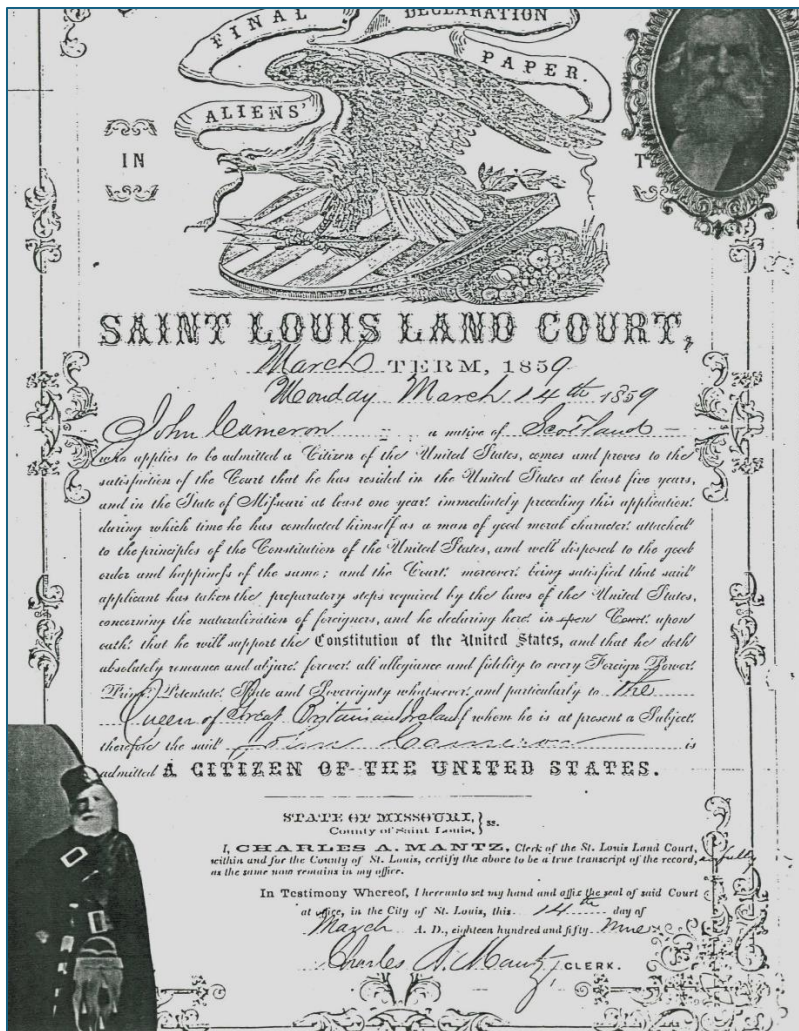 FINAL DECLARATION
PAPER.
ALIENS'
IN T
SAINT LOUIS LAND COURT,
March TERM, 1859
Monday March 14th 1859
John Cameron a native of Scotland
who applies to be admitted a Citizen of the United States, comes and proves to the
satisfaction of the Court that he has resided in the United States at least five years,
and in the State of Missouri at least one year, immediately preceding this application,
during which time he has conducted himself as a man of good moral character, attached
to the principles of the Constitution of the United States, and well disposed to the good
order and happiness of the same; and the Court, moreover, being satisfied that said
applicant has taken the preparatory steps required by the laws of the United States,
concerning the naturalization of foreigners, and he declaring here, in open Court, upon
oath, that he will support the Constitution of the United States, and that he doth
absolutely renounce and abjure forever, all allegiance and fidelity to every Foreign Power,
Prince, Potentate, State and Sovereignty whatsoever, and particularly to the
Queen of Great Britain and Ireland of whom he is at present a Subject,
therefore the said John Cameron is
admitted A CITIZEN OF THE UNITED STATES.
STATE OF MISSOURI, } ss.
County of Saint Louis,
I, CHARLES A. MANTZ, Clerk of the St. Louis Land Court,
within and for the County of St. Louis, certify the above to be a true transcript of the record, as fully
as the same now remains in my office.
In Testimony Whereof, I hereunto set my hand and affix the seal of said Court
at office, in the City of St. Louis, this 14th day of
March A. D., eighteen hundred and fifty nine
Charles A. Mantz, CLERK.